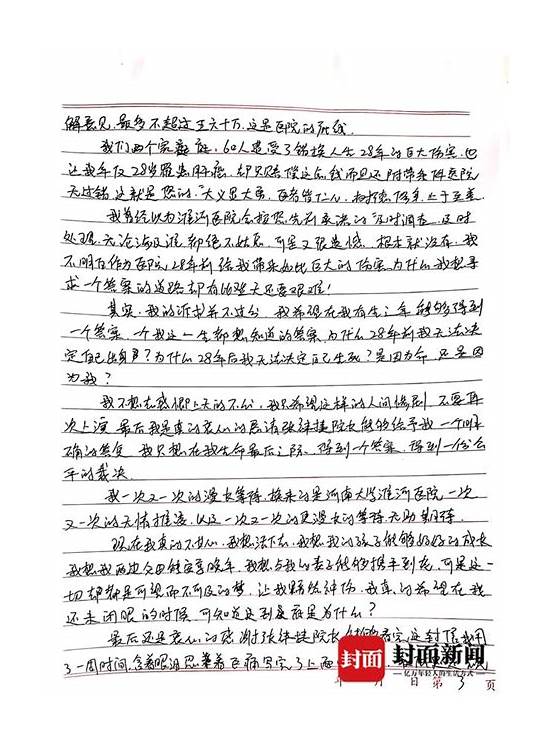 解意见,最多不超过五六十万,这是医院的底线
我们两个家庭,60人遭受了错换人生28年的巨大伤害,也
让我年仅28岁罹患肝癌,却只赔偿这么钱而且还附带条件医院
无过错,这就是您的"大义显大勇,百善皆仁心
我曾经以为淮河医院会按您先前表决的"及时调查,及时
处理,无论涉及谁都绝不姑息,可是又很遗憾,根本就没有,我
不明白作为医院28年前给我带来如此巨大的伤害,为什么我想寻
求一个答案的道路却有比登天还要艰难!
其实,我的诉求并不过分,我希望在我有生之年能够得到
一个答案,一个我这一生都想知道的答案,为什么28年前我无法决
定自己出身?为什么28年后我无法决定自己生死?是因为命,还是因
为我?
我不想去感慨上天的不公,我只希望这样的人间悲剧,不要再
次上演,最后我是真的衷心的恳请张祎捷院长能够给予我一个明
确的答复,我只想在我生命最后之际,得到一个答案,得到一份公
平的裁决
我一次又一次的漫长等待,换来的是河南大学淮河医院一次
又一次的无情推诿,以及一次又一次的更漫长的等待,无助期待
现在我真的不甘心,我想活下去,我想我的孩子能够好好的成长
我想我两边父母能安享晚年,我想与我的妻子能够携手到老,可是这一
切却都是可望而不可及的梦,让我肝肠绊你,我真的希望在我
还未闭眼的时候,可知道这到底是为什么?
最后还是衷心的感谢张祎捷院长能够看完,这封信我用
了一周时间,含着眼泪忍着巨痛写完,了上面
年 月 日 第 3 页
封面 封面新闻
亿万年轻人的生活方式